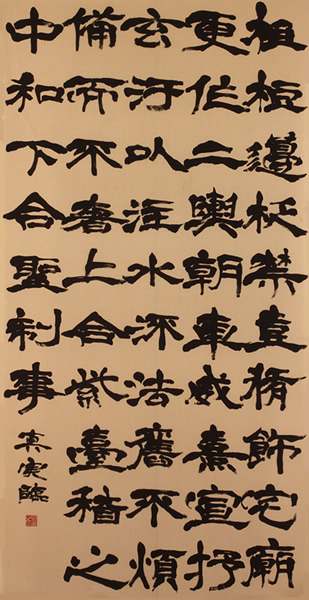 柤梪籩柉禁壺脩飾宅廟
更作二輿朝車威熹宣抒
玄汙以注水流法舊不煩
備而不奢上合紫臺稽之
中和下合聖制事
臨